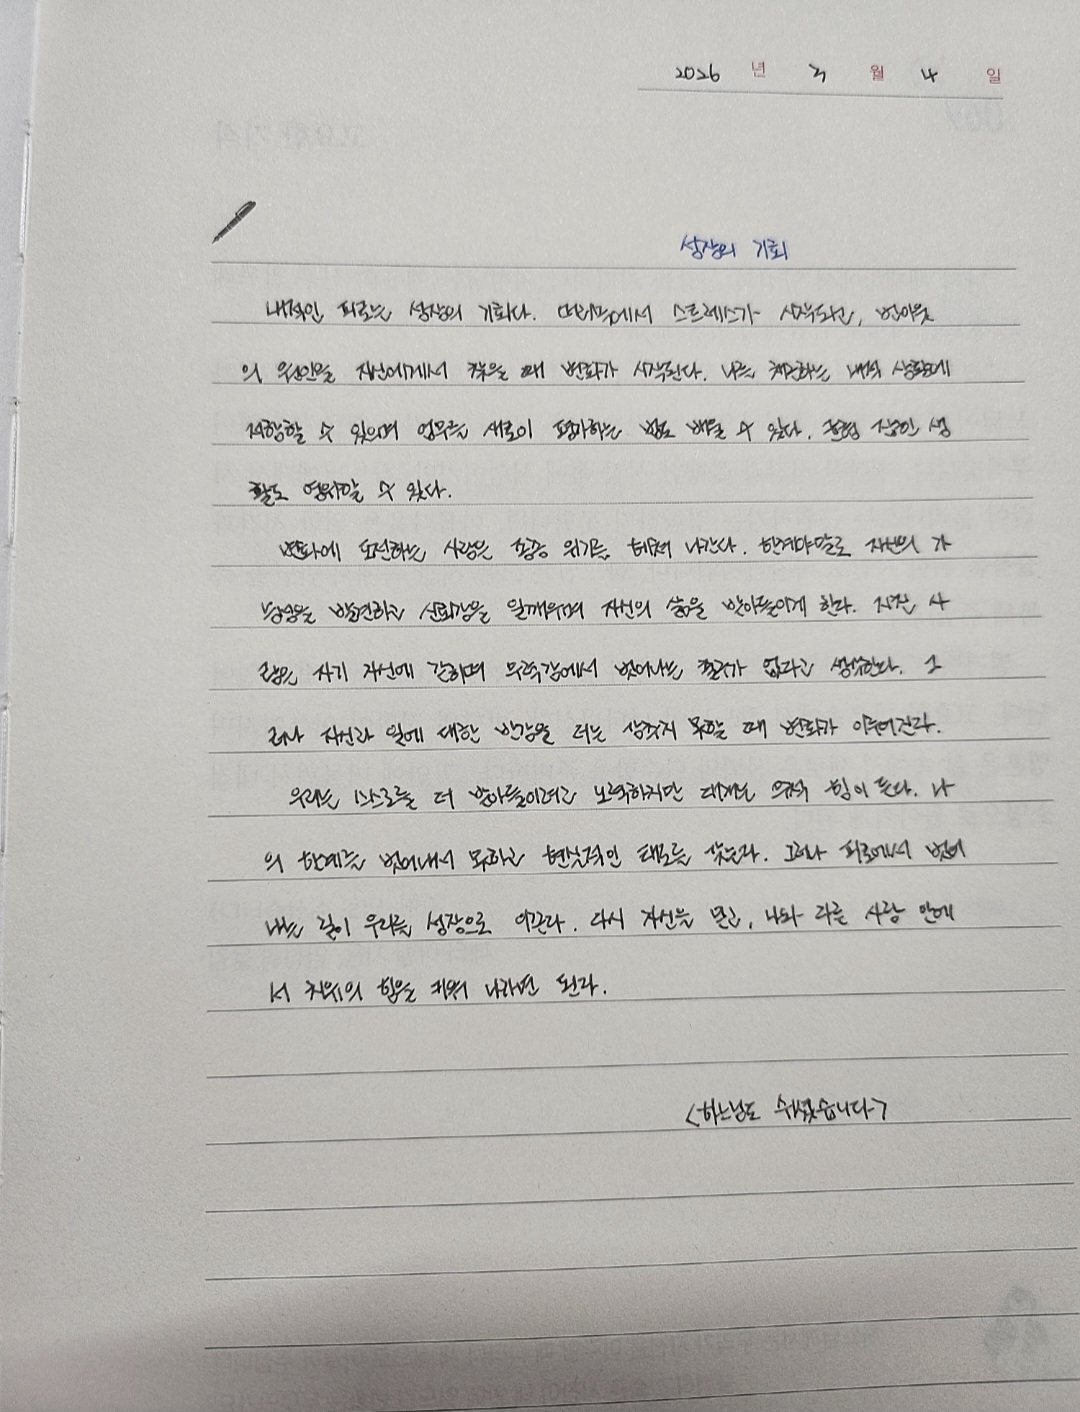 2026 년 3 월 4 일
성장의 기회
내적인 피로는 성장의 기회다. 머리속에서 스트레스가 시작되고, 번아웃
의 원인을 자신에게서 찾을 때 변화가 시작된다. 나는 체험하는 내적 상황에
저항할 수 있으며 업무를 새로이 평가하는 법도 배울 수 있다. 균형 잡힌 생
활도 영위할 수 있다.
변화에 도전하는 사람은 종종 위기를 헤쳐 나간다. 한계야말로 자신의 가
능성을 발견하고 신뢰감을 일깨우며 자신의 삶을 받아들이게 한다. 지친 사
람은 자기 자신에 갇히며 무력감에서 벗어나는 출구가 없다고 생각한다. 그
러나 자신과 일에 대한 반감을 더는 감추지 못할 때 변화가 이루어진다.
우리는 스스로를 더 받아들이려고 노력하지만 대개는 무척 힘이 든다. 나
의 한계를 벗어내서 못하고 현실적인 태도를 잊는다. 그러나 피로에서 벗어
나는 길이 우리를 성장으로 이끈다. 다시 자신을 믿고, 나와 다른 사람 안에
서 치유의 힘을 키워 나가면 된다.
<하느님도 쉬셨습니다>